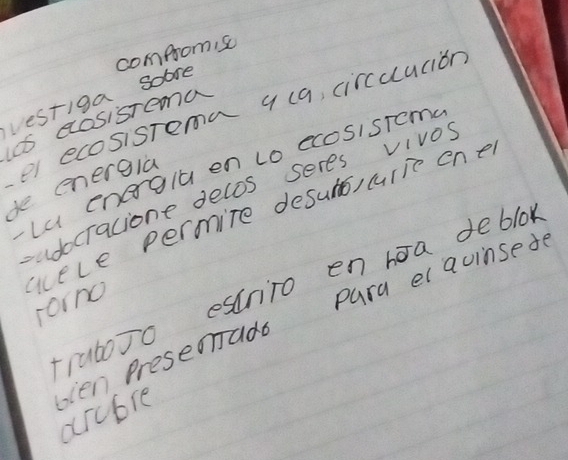 compromiso
nvestiga sobre
los ecosistema
-el ecosistema y la, circulación
de energia
-La energia en lo ecosistema
-adoctacione delos seres vivos
quele permite desurroyurse en el
torno
trabajo escrito en hoja de blok
bien presentado para el quinse de
octubre